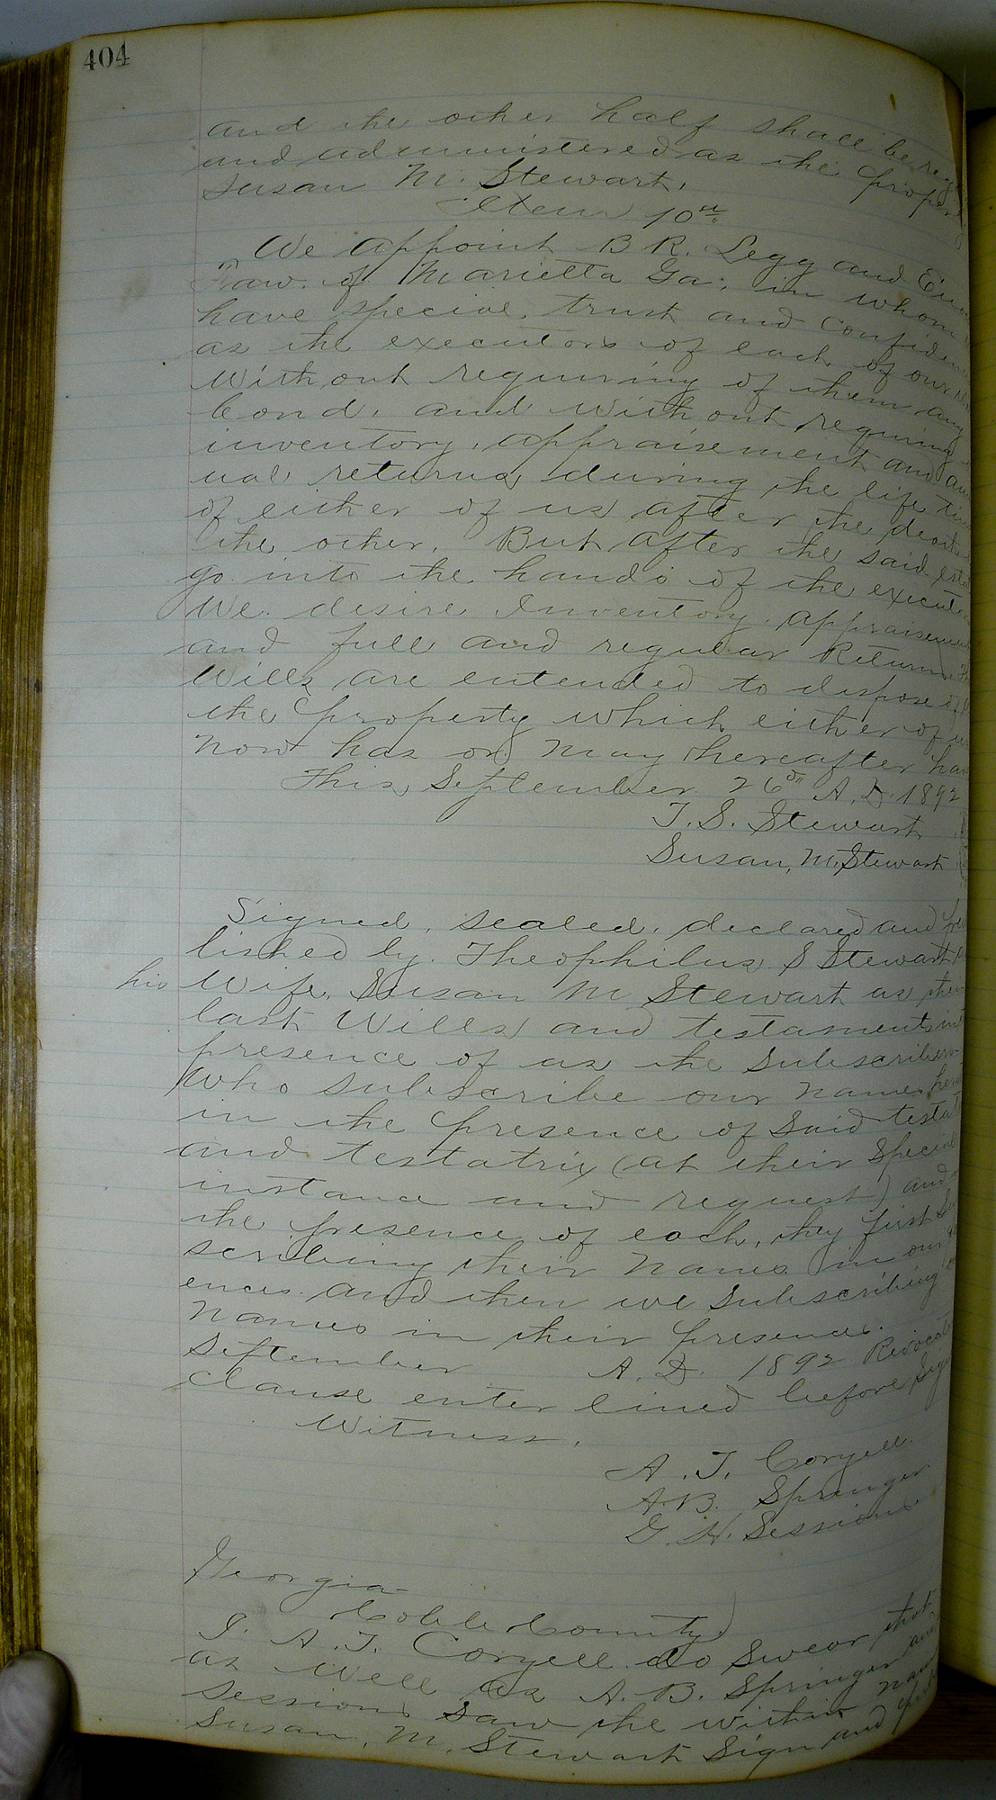 404
and the other half shall be
and administered as the
Susan M. Stewart.
Item 10th
We appoint B R. Legg and
Faw. of Marietta Ga; in whom
have special trust and
as the executors of each of our
Without requiring of them any
bond, and without requiring
inventory, appraisement and
ual returns, during the life
of either of us after the death
the other. But after the said
go into the hands of the
We desire Inventory. appraisement
and full and regular Return
Wills are entended to dispose of
the property which either of us
now has or may hereafter have
This September 26th A.D. 1892
T. S. Stewart
Susan, M, Stewart
Signed, sealed, declared and
lished by Theophilus S Stewart
his Wife, Susan M Stewart as
last Wills and testaments in
presence of as the Subscribers
Who subscribe our names
in the presence of Said
and testatrix (at their Special
instance and request) and
the presence of each, they first
scribing their names in our
ences and then we Subscribing
names in their presence.
September A.D. 1892
clause enter lined before
Witness.
A. T. Coryell
A. B. Springer
G. H. Sessions
Georgia
Cobb County)
I. A. T. Coryell do Swear that
as well as A. B. Springer and
Sessions saw the within
Susan, M. Stewart Sign and